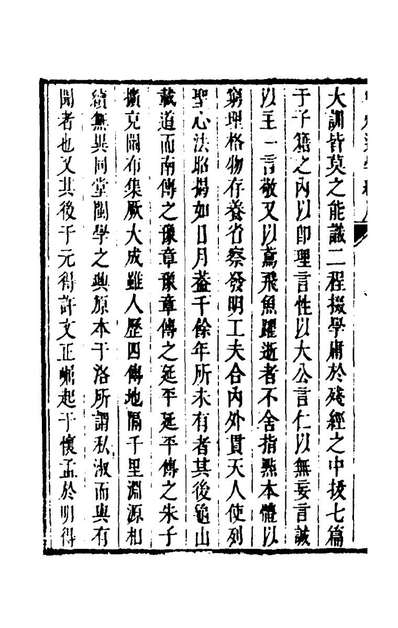 大訓皆莫之能識二程掇學庸於殘經之中拔七篇
于子籍之內以卽理言性以大公言仁以無妄言誠
以主一言敬又以鳶飛魚躍逝者不舍指點本體以
窮理格物存養省察發明工夫合內外貫天人使列
聖心法昭揭如日月葢千餘年所未有者其後龜山
載道而南傳之豫章豫章傳之延平延平傳之朱子
擴克闡布集厥大成雖人歷四傳地隔千里淵源相
續無異同堂閩學之興原本于洛所謂私淑而與有
聞者也又其後于元得許文正崛起于懷孟於明得